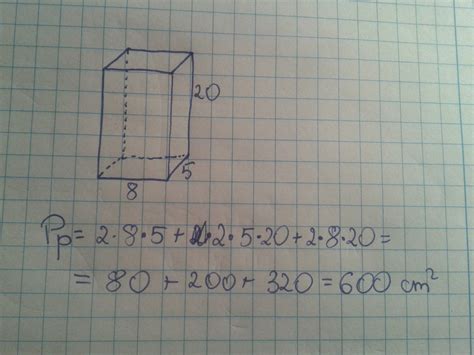 20
5
8
Pp = 2·8·5 + 2·5·20 + 2·8·20 =
= 80 + 200 + 320 = 600 cm²